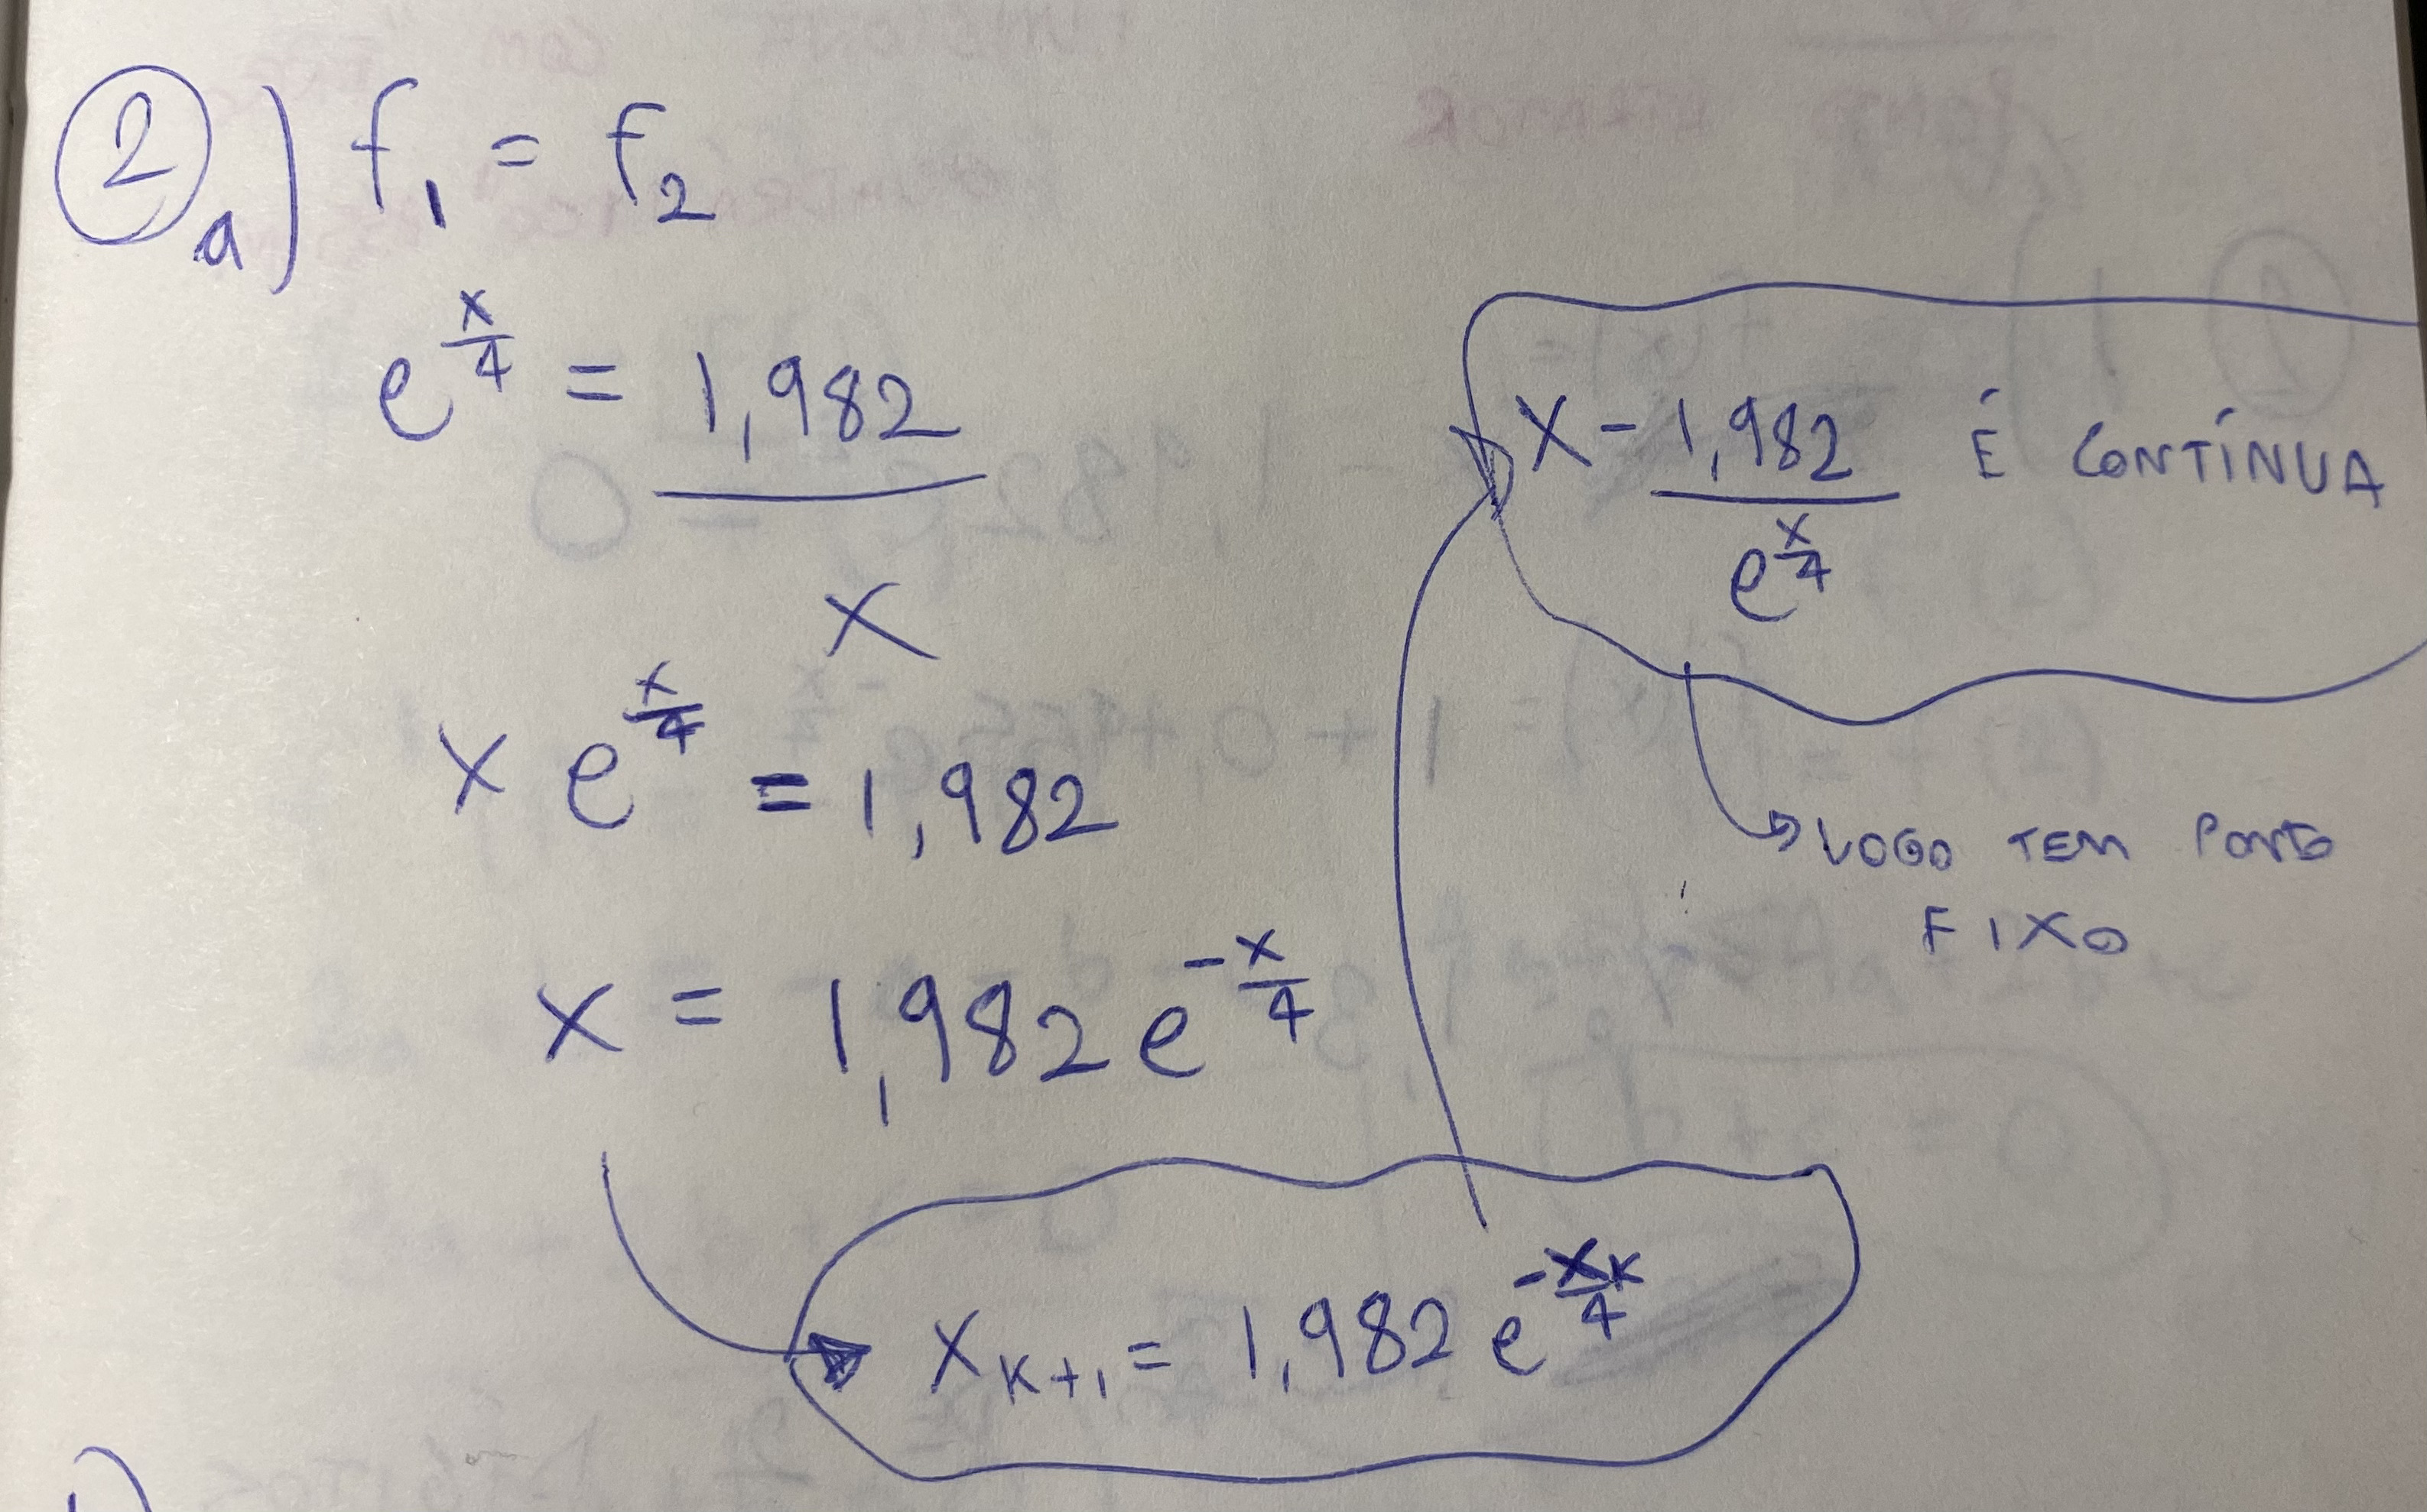 2 a) f₁ = f₂
e^(x/4) = 1,982/x
x e^(x/4) = 1,982
x = 1,982 e^(-x/4)
x_(K+1) = 1,982 e^(-x_K/4)
x - 1,982/e^(x/4) É CONTÍNUA
LOGO TEM PONTO
FIXO